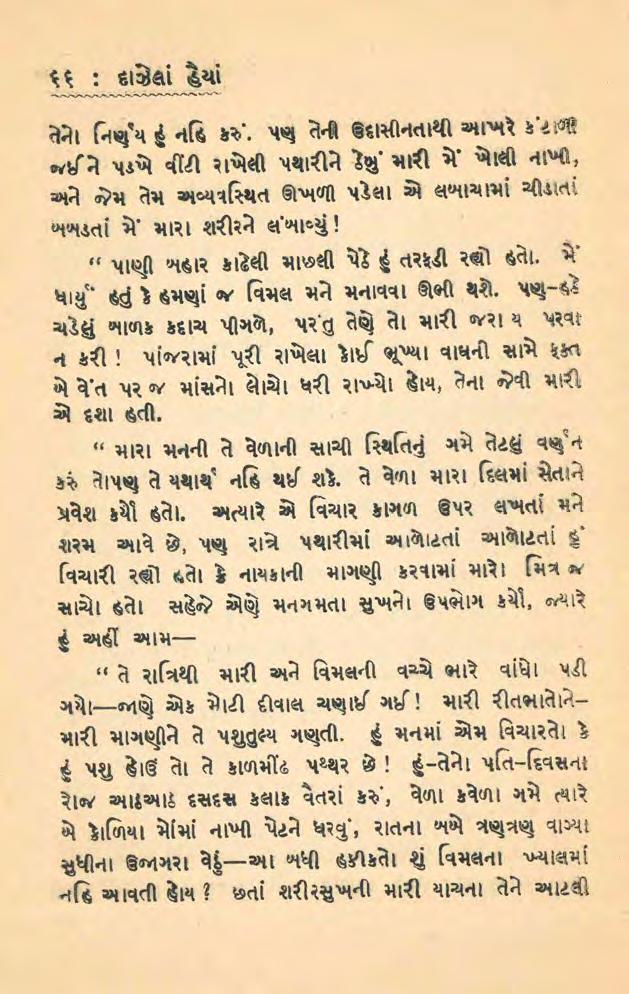 ૬૬ : દાઝેલાં હૈયાં
તેનો નિર્ણય હું નહિ કરું. પણ તેની ઉદાસીનતાથી આખરે કંટાળી
જઈને પડખે વીંટી રાખેલી પથારીને ઠેબું મારી મેં ખોલી નાખી,
અને જેમ તેમ અવ્યવસ્થિત ઊખળી પડેલા એ લબાચામાં ચીડાતાં
બબડતાં મેં મારા શરીરને લંબાવ્યું!
“ પાણી બહાર કાઢેલી માછલી પેઠે હું તરફડી રહ્યો હતો. મેં
ધાર્યું હતું કે હમણાં જ વિમલ મને મનાવવા ઊભી થશે. પણ-હઠે
ચડેલું બાળક કદાચ પીગળે, પરંતુ તેણે તો મારી જરા ય પરવા
ન કરી! પાંજરામાં પૂરી રાખેલા કોઈ ભૂખ્યા વાઘની સામે ફક્ત
બે વેંત પર જ માંસનો લોચો ધરી રાખ્યો હોય, તેના જેવી મારી
એ દશા હતી.
“ મારા મનની તે વેળાની સાચી સ્થિતિનું ગમે તેટલું વર્ણન
કરું તોપણ તે યથાર્થ નહિ થઈ શકે. તે વેળા મારા દિલમાં સેતાને
પ્રવેશ કર્યો હતો. અત્યારે એ વિચાર કાગળ ઉપર લખતાં મને
શરમ આવે છે, પણ રાત્રે પથારીમાં આળોટતાં આળોટતાં હું
વિચારી રહ્યો હતો કે નાયકાની માગણી કરવામાં મારો મિત્ર જ
સાચો હતો. સહેજે એણે મનગમતા સુખનો ઉપભોગ કર્યો, જ્યારે
હું અહીં આમ—
“ તે રાત્રિથી મારી અને વિમલની વચ્ચે ભારે વાંધો પડી
ગયો—જાણે એક મોટી દીવાલ ચણાઈ ગઈ! મારી રીતભાતોને-
મારી માગણીને તે પશુતુલ્ય ગણતી. હું મનમાં એમ વિચારતો કે
હું પશુ હોઉં તો તે કાળમીંઢ પથ્થર છે! હું-તેનો પતિ-દિવસના
રોજ આઠઆઠ દસદસ કલાક વૈતરાં કરું, વેળા કવેળા ગમે ત્યારે
બે કોળિયા મોંમાં નાખી પેટને ધરવું, રાતના બબે ત્રણત્રણ વાગ્યા
સુધીના ઉજાગરા વેઠું—આ બધી હકીકતો શું વિમલના ખ્યાલમાં
નહિ આવતી હોય? છતાં શરીરસુખની મારી યાચના તેને આટલી